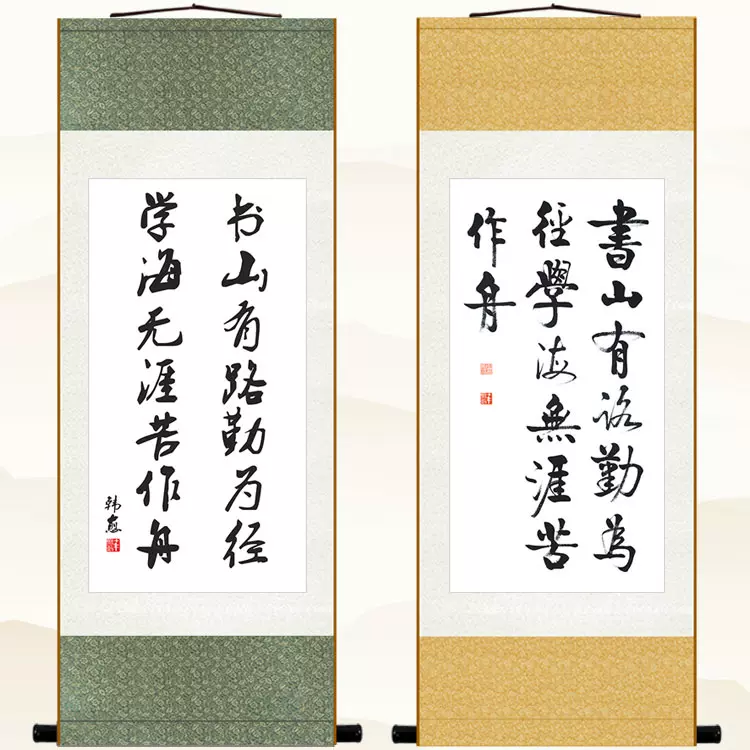 书山有路勤为径
学海无涯苦作舟
韩愈
書山有路勤為
徑學海無涯苦
作舟